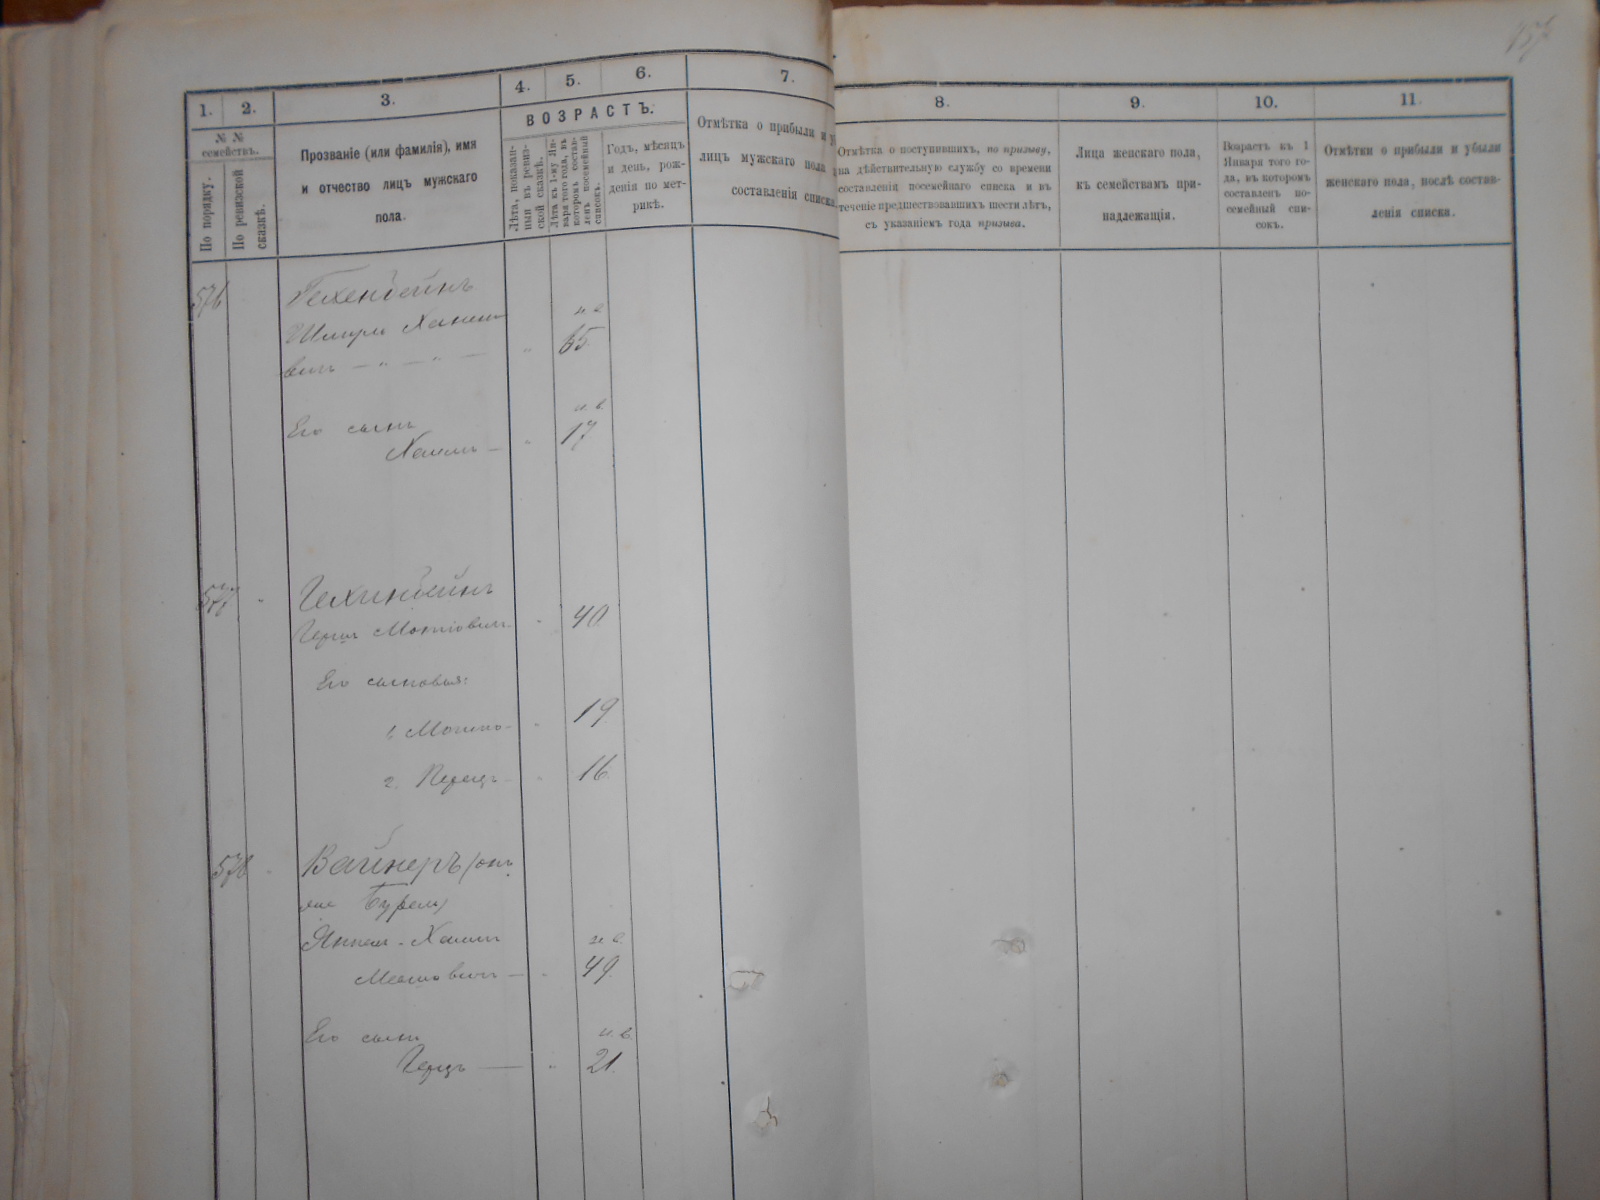 1.
2.
3.
4.
5.
6.
7.
8.
9.
10.
11.
№ №
семействъ.
По порядку.
По ревизской
сказкѣ.
Прозваніе (или фамилія), имя
и отчество лицъ мужскаго
пола.
ВОЗРАСТЪ.
Лѣта, показан-
ныя въ ревиз-
ской сказкѣ.
Лѣта къ 1-му Ян-
варя того года, въ
которомъ состав-
ленъ посемейный
списокъ.
Годъ, мѣсяцъ
и день, рож-
денія по мет-
рикѣ.
Отмѣтка о прибыли и
лицъ мужскаго пола
составленія списка
Отмѣтка о поступившихъ, по призыву,
на дѣйствительную службу со времени
составленія посемейнаго списка и въ
теченіе предшествовавшихъ шести лѣтъ,
съ указаніемъ года призыва.
Лица женскаго пола,
къ семействамъ при-
надлежащія.
Возрастъ къ 1
Января того го-
да, въ которомъ
составленъ по-
семейный спи-
сокъ.
Отмѣтки о прибыли и убыли
женскаго пола, послѣ состав-
ленія списка.
576
Гехенбейнъ
Хаимо
вичъ
н. в.
65.
Его сынъ
н. в.
Хаимъ
17
577
Гехинбейнъ
Герш Мотіовичъ
40.
Его сыновья:
Мошко
19.
2. Перецъ
16.
578
Вайнеръ (онъ
же
Янкель-Хаимъ
н. в.
Мошовичъ
49.
Его сынъ
н. в.
Герцъ
21.